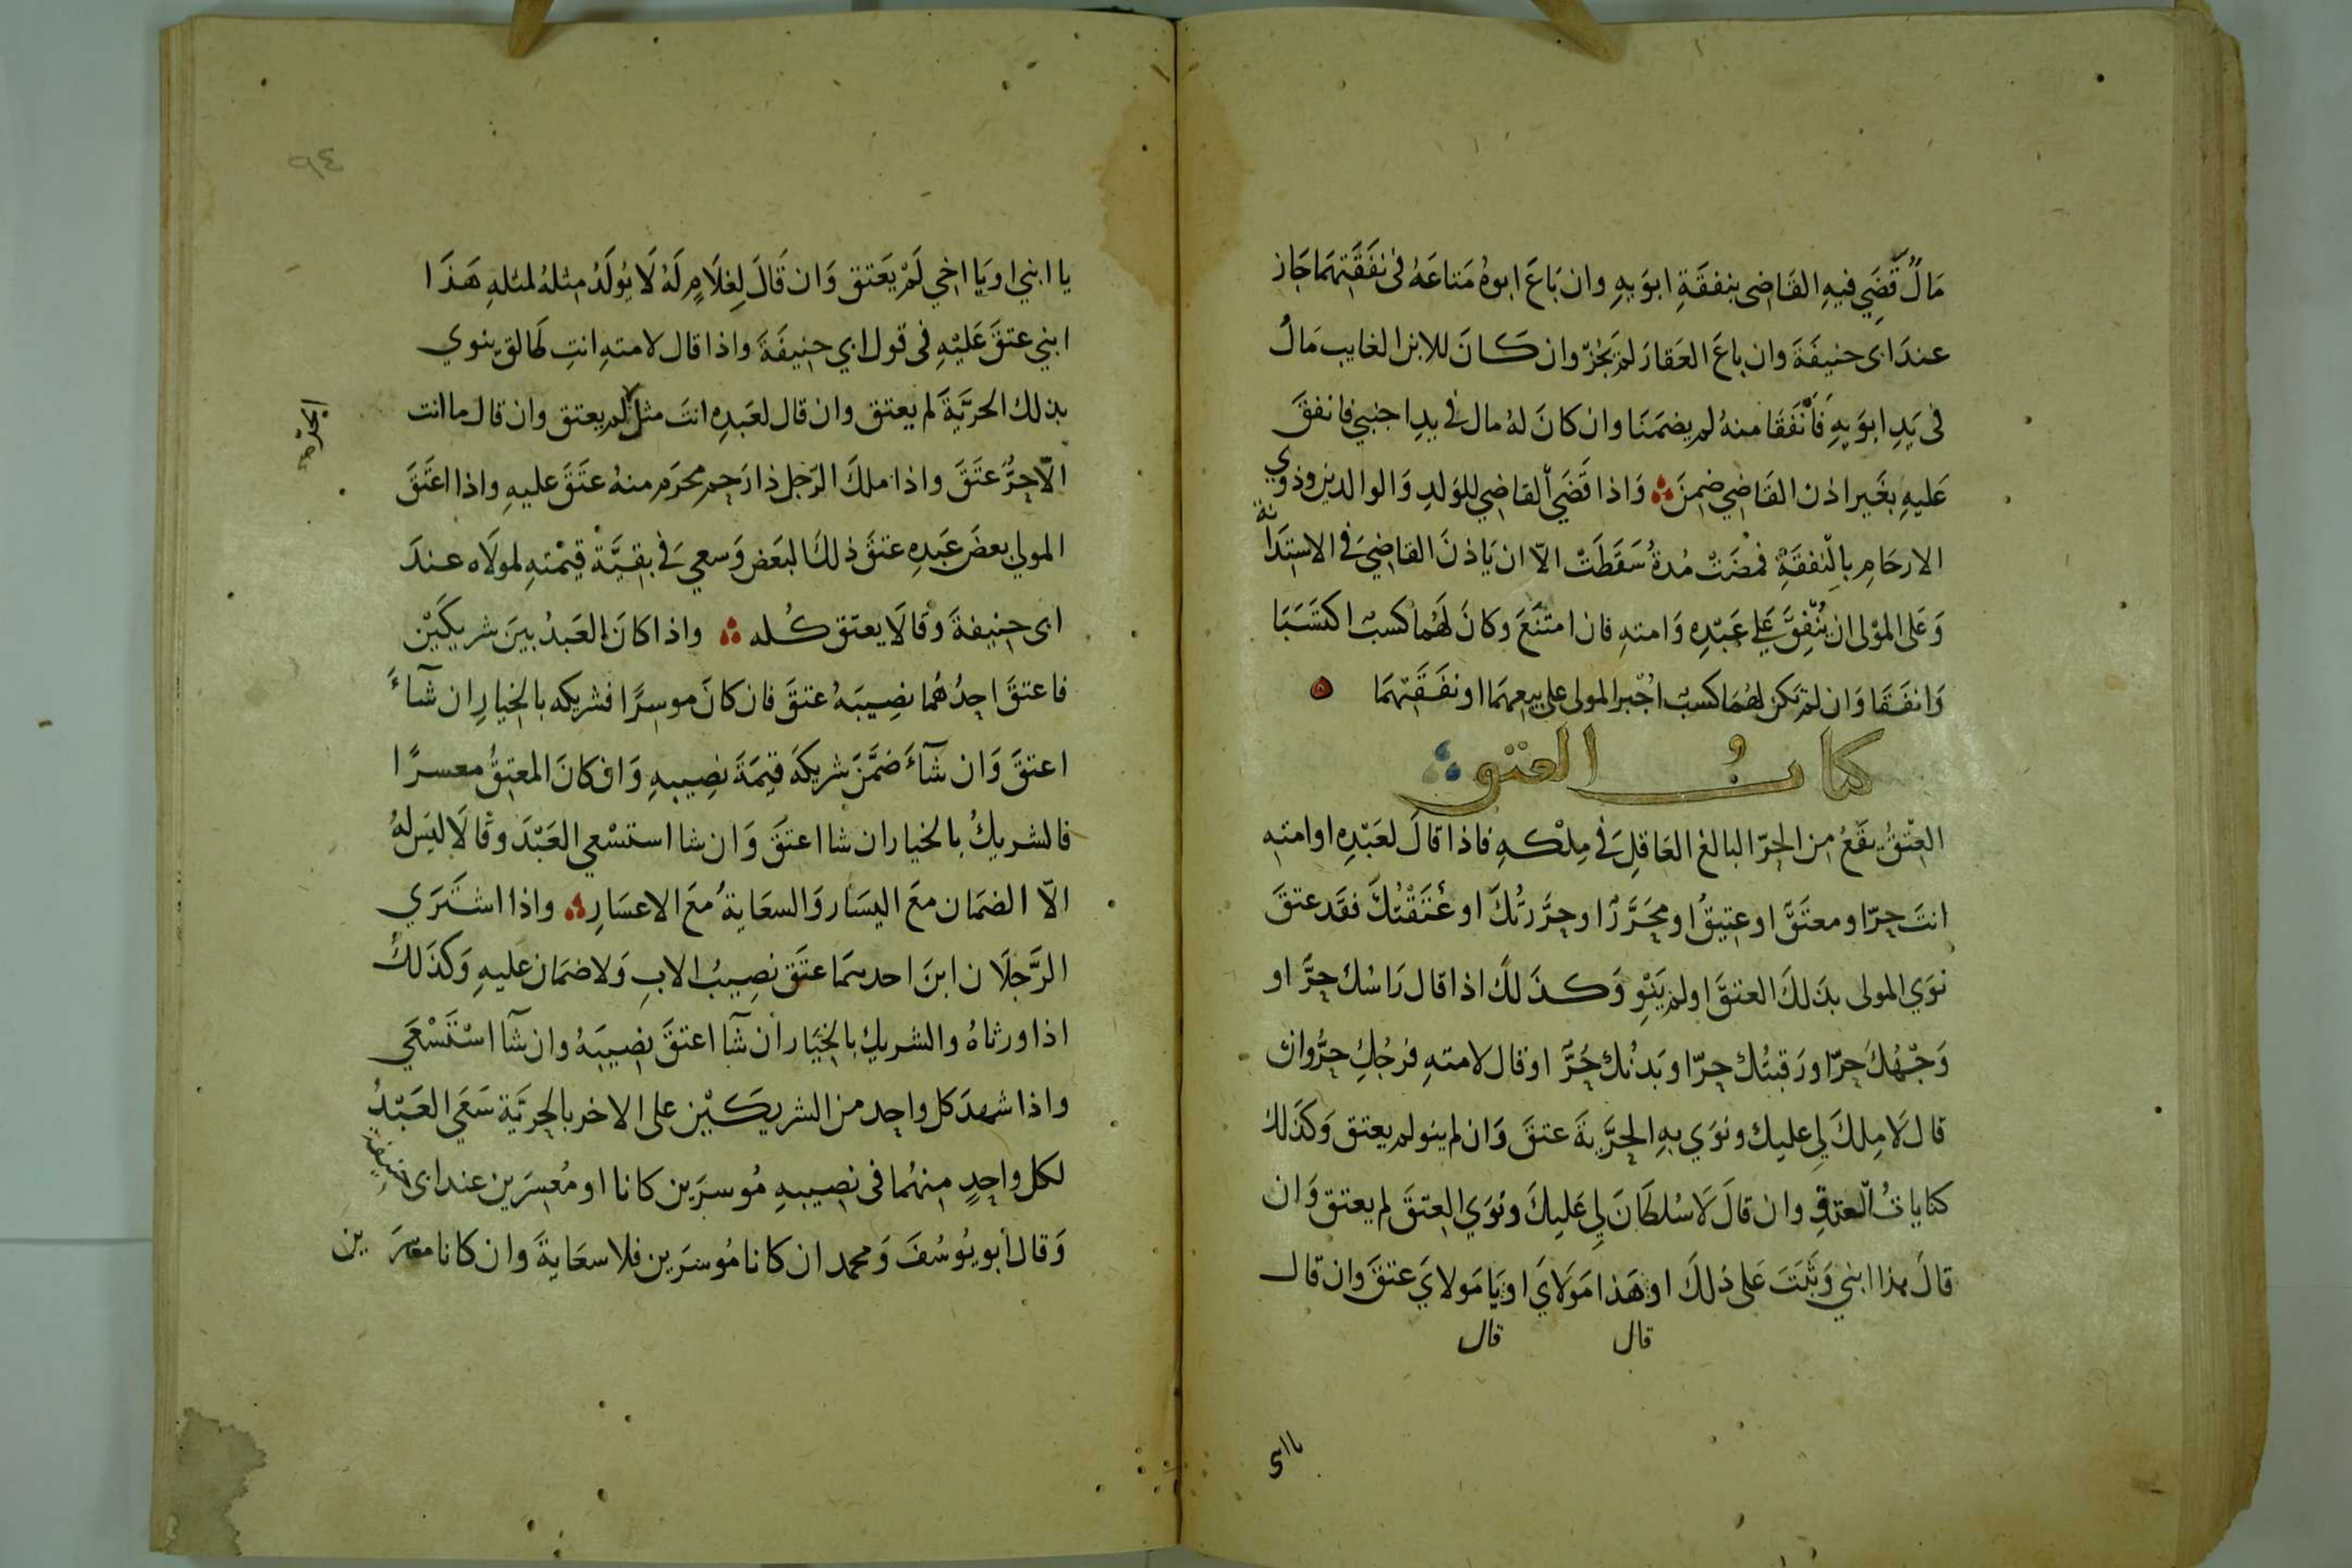 مَالٌ قَضَي فيهِ القَاضِى بنفقَةِ ابوَيهِ وان بَاعَ ابوهُ مَتاعَهُ فى نفَقَتِهمَا جَاز
عندَ ابى حنيفَةَ وان باعَ العَقارَ لم يَجُزْ وان كانَ للابن الغايب مَالٌ
فى يَدِ ابوَيهِ فَأنْفَقَا منهُ لم يضمَنَا وان كانَ لهُ مال في يدِ اجنبي فانفقَ
عَليهِ بغَير اذن القَاضِي ضمِنَ وَاذا قَضَي القاضِي للوَلدِ وَالوالدين وذوي
الارحَامِ بالنفقَةِ فمضَتْ مُدةُ سَقَطَتْ الاّ ان يَاذنَ القاضِيَ في الاستِدَانة
وَعَلى المَوْلى ان يُنْفِقَ عَلي عَبْدِه وَامتهِ فان امتَنَعَ وكانَ لَهُما كسبٌ اكتسَبَا
وَانفَقَا وَان لم يَكن لهُمَا كسبٌ اُجْبر المولى على بيعهمَا او نفَقَتِهمَا
كتابُ العتق
العِتْقُ يقَعُ مِن الحرّ البالغ العَاقلِ في مِلْكهِ فاذا قالَ لعَبْدِه او امتهِ
انتَ حرّ او معتَقٌ او عتِيقٌ او محَرَّرٌ او حرَّرتُكَ او عْتَقْتُكَ فقَد عتقَ
نَوَي المولى بذَلكَ العتقَ او لم يَنْوِ وَكذَلكَ اذا قال رَاسُك حرٌّ او
وَجْهُكَ حرّ او رَقبتُك حرّ او بَدنُك حُرٌّ او قال لامتهِ فرجُكِ حرٌّ وان
قال لَا مِلكَ لِي عليك ونوَي بهِ الحرِّيةَ عتقَ وَان لم ينو لم يعتق وَكذَلك
كناياتُ العتق وان قالَ لَا سُلطَانَ لِي عَليكَ ونوَي العِتقَ لم يعتق وَان
قالَ هذا ابني وَثَبَتَ عَلى ذلكَ او هَذا مَوَلايَ او يَا مَولايَ عتقَ وان قال
قال قال
يا ابنى
٩٤
يا ابني او يَا اخِي لَمْ يَعتق وَان قَالَ لِغلَامٍ لَهُ لَا يُولَدُ مِثلهُ لمثلهِ هَذَا
ابني عتقَ عَليْهِ فى قول ابي حنيفَةَ واذا قال لامتهِ انتِ طَالق ينوي
بذلك الحريَّةَ لم يعتق وان قال لعَبدِه انتَ مثل لم يعتق وان قال ما انت
الحر
الاّ حرٌّ عتَقَ واذا ملكَ الرّجل ذا رَحِم محرَم منهُ عتَقَ عليهِ واذا اعتَقَ
المولي بعضَ عَبدِه عتقَ ذلكَ البَعض وَسعي في بقِيَّةْ قيمْتهِ لمولَاه عندَ
ابى حنِيفةَ وَقالَا يعتق كُله واذا كانَ العَبدُ بينَ شريكَيْن
فاعتقَ احدُهُما نصِيبَهُ عتقَ فان كانَ موسِرًا فشريكه بالخيارِ ان شآءَ
اعتقَ وَان شآءَ ضمَّنَ شريكهَ قيمَةَ نصِيبهِ وَان كانَ المعتِقُ معسرًا
فالشريكُ بالخيار ان شا اعتَقَ وَان شا استسْعي العَبْدَ وقالَا ليسَ لهُ
الاّ الضمَان معَ اليسَار وَالسعَايةُ معَ الاعسَارِ واذا اشتَرَي
الرَّجلَان ابنَ احدهمَا عتَقَ نصِيبُ الابِ وَلا ضمَان عَليهِ وَكذَلكَ
اذا ورثاهُ والشريك بالخِيَار ان شآ اعتقَ نصِيبَهُ وان شآ استَسْعَي
واذا شهدَ كل واحِد من الشريكَيْن على الاخر بالحريَّة سَعَي العَبْدُ
لكل واحِدٍ منهُما فى نصِيبهِ مُوسرَين كانا او مُعسِرَين عند ابى حنيفة
وَقال أبو يُوسُفَ وَمحمد ان كانا مُوسرَين فلا سعَايةَ وان كانا معسرَين